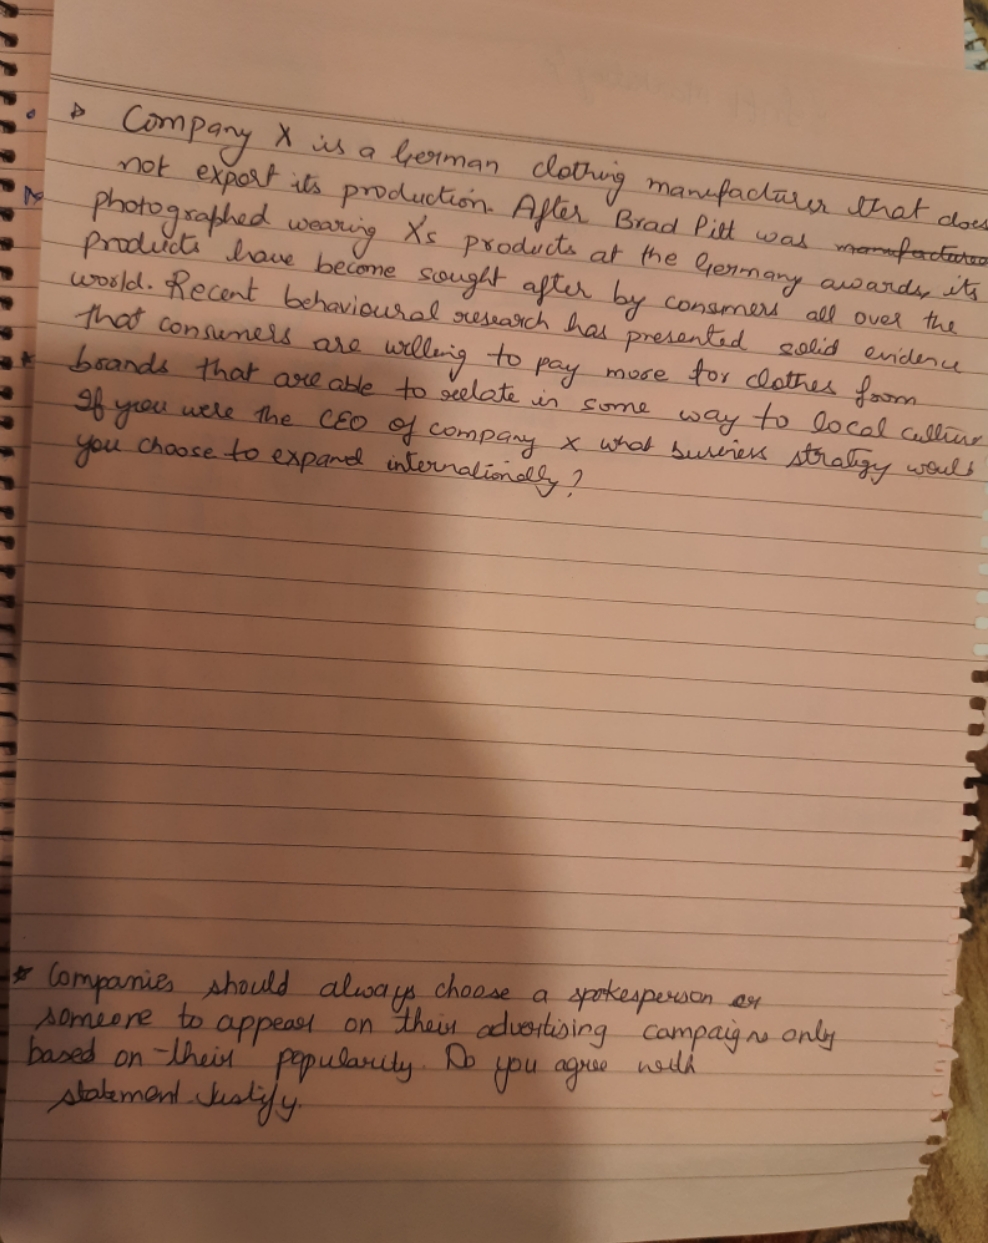 Company X is a German clothing manufacturer that does
not export its production. After Brad Pitt was manufactured
photographed wearing X's products at the Germany awards, its
products have become sought after by consumers all over the
world. Recent behavioural research has presented solid evidence
that consumers are willing to pay more for clothes from
brands that are able to relate in some way to local culture
If you were the CEO of company X what business strategy would
you choose to expand internationally?
* Companies should always choose a spokesperson or
someone to appear on their advertising campaigns only
based on their popularity. Do you agree with
statement. Justify.